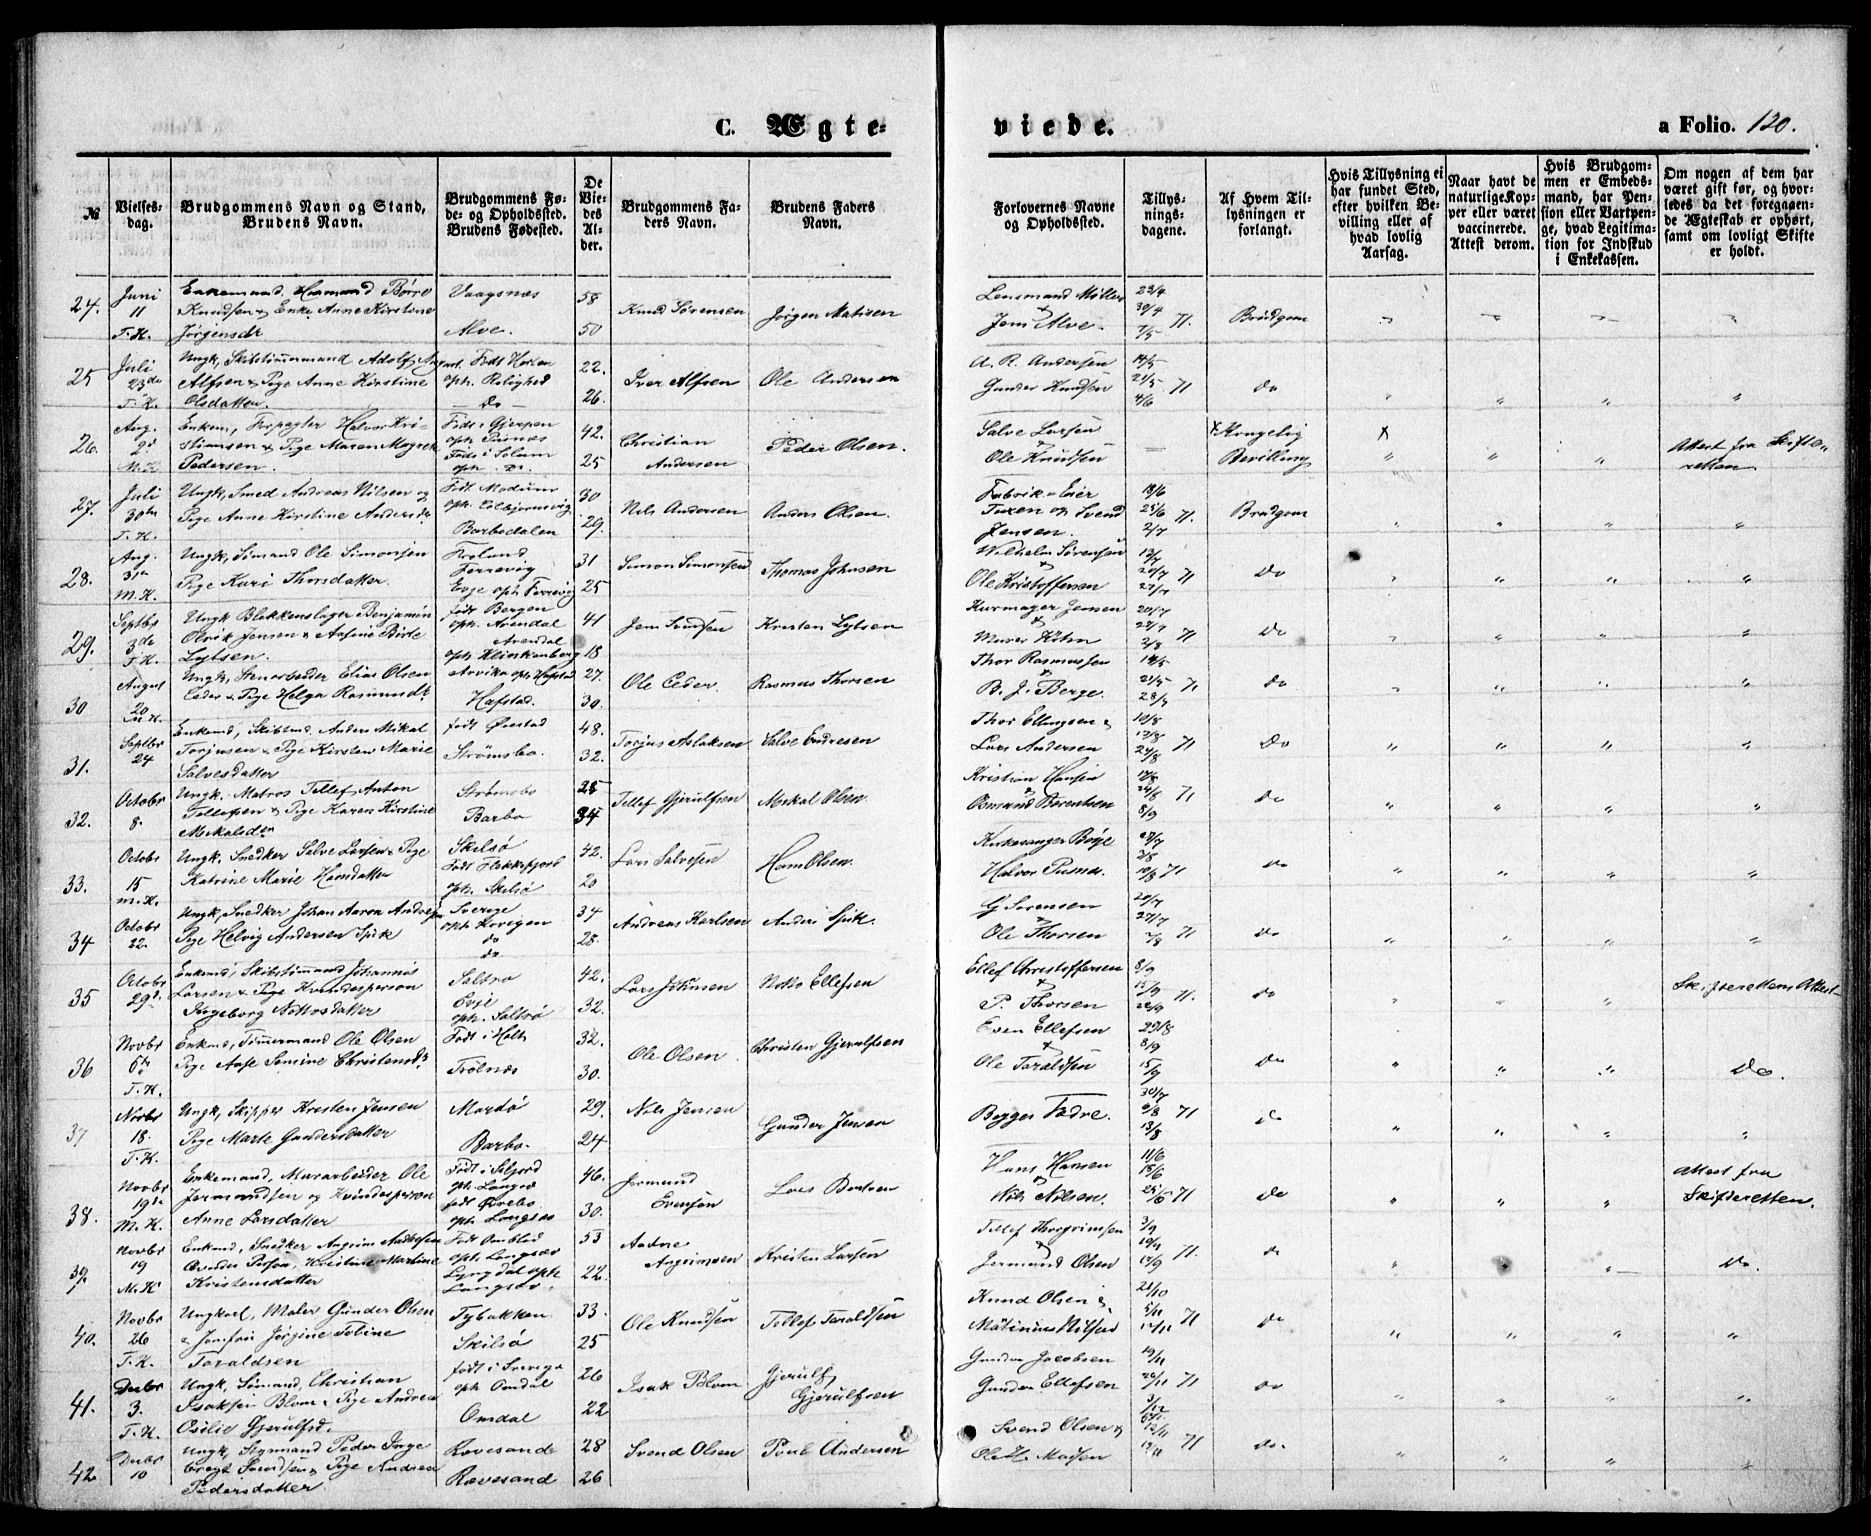 C. Ægte-
viede.
a Folio. 120.
№
Vielses-
dag.
Brudgommens Navn og Stand,
Brudens Navn.
Brudgommens Fø-
de- og Opholdssted.
Brudens Fødested.
De
Vie-
des
Al-
der.
Brudgommens Fa-
ders Navn.
Brudens Faders
Navn.
Forlovernes Navne
og Opholdssted.
Tillys-
nings-
dagene.
Af Hvem Til-
lysningen er
forlangt.
Hvis Tillysning ei
har fundet Sted,
efter hvilken Be-
villing eller af
hvad lovlig
Aarsag.
Naar havt de
naturlige Kop-
per eller været
vaccinerede.
Attest derom.
Hvis Brudgom-
men er Embeds-
mand, har Pen-
sion eller Vartpen-
ge, hvad Legitima-
tion for Indskud
i Enkekassen.
Om nogen af dem har
været gift før, og hvor-
ledes da det foregaaen-
de Ægteskab er ophørt,
samt om lovligt Skifte
er holdt.
24.
Juni
11
T. K.
Enkemand Børre
Knudsen & Enke Anne Kirstine
Jørgensdr
Vaagsnæs
Alve.
58
50
Knud Sørensen
Jørgen Matisen
Lensmand Møller
&
Jens Alve.
23/4
30/4
7/5
71.
Brudgom
25
Juli
23de
T. K.
Ungk, Skibstømmermand Adolf August
Alfsen & Pige Anne Kirstine
Olsdatter.
Født Horten
oph. Rolighed
Do
22.
26.
Iver Alfsen
Ole Andersen
A. R. Andersen
Gunder Knudsen
14/5
21/5
4/6
71
do
26.
Aug.
2d
M. K.
Enkem, Forpagter Halvor Kri-
stiansen & Pige Maren Magrete
Pedersen.
Født i Gjerpen
oph.
Født i Solum
oph. do.
42.
25
Christian
Andersen
Peder Olsen.
Salve Larsen
&
Ole Knudsen
Kongelig
Bevilling
Attest fra Skifte-
retten
27.
Juli
30te
T. K.
Ungk, Smed Andreas Nilsen og
Pige Anne Kirstine Andersdr
Født Modum
oph. Colbjørnsvig
Barbodalen
30
29.
Nils Andersen
Anders Olsen.
Fabrik-Eier
Tuxen og Svend
Jensen.
18/6
25/6
2/7
71.
Brudgom
28.
Aug.
31te
M. K.
Ungk, Sømand Ole Simonsen
Pige Kari Thorsdatter
Froland
Færevig
Evje oph. Færevig
31
25
Simon Simonsen
Thomas Johnsen
Wilhelm Sørensen
&
Ole Kristoffersen
13/7
20/7
27/7
71
Do
29.
Septbr
3de
T. K.
Ungk Blokkenslager Benjamin
Olrik Jensen & Birte
Lytsen.
født Bergen
oph. Arendal
Arendal
oph. Klinkenberg
41
18
Jens
Kristen Lytsen
Kurmager Jensen
&
Kühn
20/7
27/7
2/8
71
Do
30
August
20
M. K.
Ungk, Stenarbeider Elias Olsen
Ceder & Pige Helga Rasmusdr
Arvika oph. Hafstad
Hafstad.
27.
30.
Ole Ceder
Rasmus Thorsen
Thor Rasmussen
&
B. J. Berge.
14/5
21/5
28/5
71
do
31.
Septbr
24
Enkemd, Skibstmd. Anders Mikal
Torjusen & Pige Kirsten Marie
Salvesdatter
født Øiestad
Strømsbo.
48.
32.
Torjus Aslaksen
Salve Endresen
Thor Ellingsen &
Lars Andersen
10/8
13/8
24/8
71
Do
32.
Octobr
8.
Ungk. Matros Tellef Anton
Tellefsen & Pige Karen Kirstine
Mikalsdtr
Strømsbo
Barbo
25
34
Tellef Gjerulfsen
Mikal Olsen
Kristian Hansen
&
Osmund Berentsen
24/8
8/9
71
Do
33.
Octobr
15
M. K.
Ungk. Snedker Salve Larsen & Pige
Katrine Marie Hansdatter
Skilsø
Født Flekkefjord
oph. Skilsø
42.
20
Lars Salvesen
Hans Olsen.
Kirkesanger Bøye
Halvor
27/7
3/8
10/8
71
do
34
Octobr
22.
Ungk, Snedker Johan Aaron Andresen
Pige Helvig Andersen Spik
Sverige
oph. Kovigen
do
do
34
28.
Andreas Karlsen
Anders Spik.
G Sørensen
&
Ole Thorsen
20/7
27/7
71
Do
35
Octobr
29d.
Enkemd, Skibstømmand Johannes
Larsen & Pige Kvindesperson
Ingeborg Nottosdatter
Saltrø
Evje
oph. Saltrø
42.
32.
Lars Johnsen
Notto Ellefsen
Ellef Christoffersen
&
P. Thorsen
8/9
15/9
22/9
71.
do
Skifterettens Attest
36
Novbr
5te
T. K.
Enkmd, Tømmermand Ole Olsen
Pige Aase Semine Christensdr
Født i Holt
Trolnæs
32.
30.
Ole Olsen
Christen Gjerulfsen
Even Ellefsen
&
Ole Taraldsen
29/8
8/9
15/9
Do
Do.
37
Novbr
18.
T. K.
Ungk, Skipper Kristen Jensen
Pige Marte Gundersdatter
Mardø
Barbo.
29.
24
Nils Jensen
Gunder Jensen
30/7
6/8
13/8
71
do
38.
Novbr
19de
M. K.
Enkemand, Murarbeider Ole
Jermundsen og Kvindesperson
Anne Larsdatter
Født i Seljord
oph. Langsæ
født Øvrebø
oph. Langsæ
46.
30.
Jermund
Evensen
Lars Bentsen
Hans Hansen
&
Nils Nilsen.
11/6
18/6
25/6
71
do
Attest fra
Skifteretten.
39.
Novbr
19
M. K.
Enkmd, Snedker Angrim Aadnesen
Kristine Martine
Kristensdatter
Født Omblid
oph. Langsæv
Lyngdal oph.
Langsæv.
53
22.
Aadne
Angrimsen
Kristen Larsen
Tellef Thorgrimsen
&
Jermund Olsen
3/9
10/9
17/9
71.
do
Do.
40.
Novbr
26
T. K.
Ungkarl, Maler Gunder Olsen
& Jomfru Jørgine Tobine
Taraldsen
Tybakken
Skilsø
33.
25
Ole Knudsen
Tellef Taraldsen
Knud Olsen &
Matinius Nilsen
21/10
5/11
12/11
71
do
41.
Decbr
3.
T. K.
Ungk, Sømand, Christian
Isaksen Blom & Pige Andrea
Osilie Gjerulfsd.
født i Sverige
oph. Omdal
Omdal
26
22
Isak Blom
Gjerulf
Gjerulfsen
Gunder Jacobsen
Gunder Ellefsen
19/11
26/11
3/12
71
do
42
Decbr
10
Ungk, Styrmand Peder Inge
bregt Svendsen & Pige Andrea
Pedersdatter
Rævesand
Rævesand
28
26
Svend Olsen
Poul Andersen
Svend Olsen &
Ole H. Madsen
12/11
19/11
71
do.